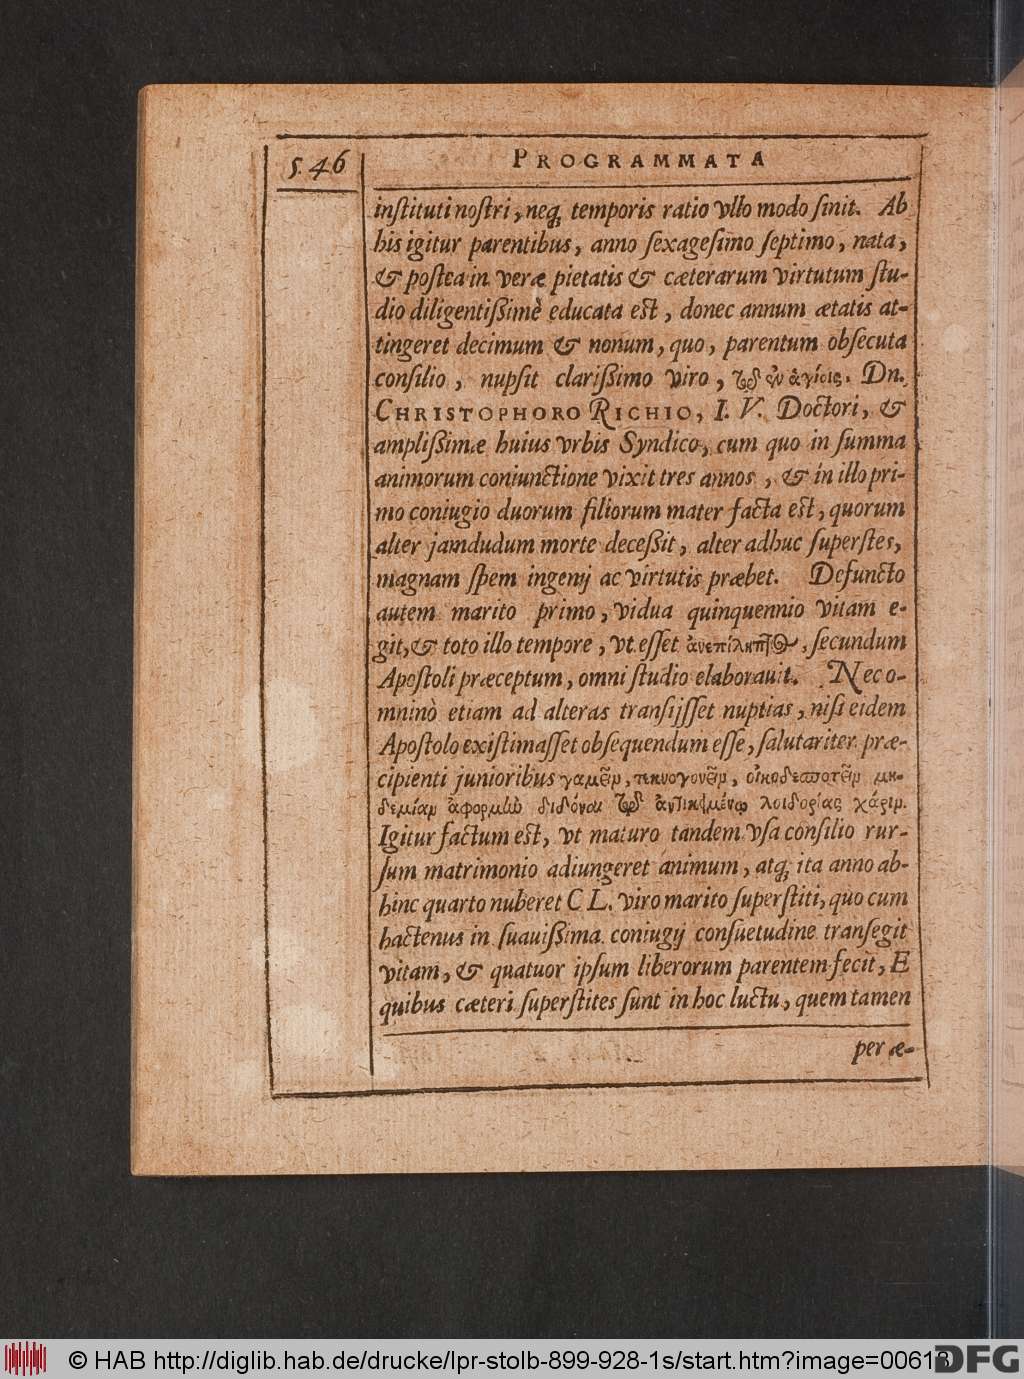 546
PROGRAMMATA
instituti nostri, neq; temporis ratio vllo modo sinit. Ab
his igitur parentibus, anno sexagesimo septimo, nata,
& postea in veræ pietatis & cæterarum virtutum stu-
dio diligentißimè educata est, donec annum ætatis at-
tingeret decimum & nonum, quo, parentum obsecuta
consilio, nupsit clarißimo viro, τῷ ἐν ἁγίοις. Dn.
CHRISTOPHORO RICHIO, I. V. Doctori, &
amplißimæ huius vrbis Syndico, cum quo in summa
animorum coniunctione vixit tres annos, & in illo pri-
mo coniugio duorum filiorum mater facta est, quorum
alter jamdudum morte deceßit, alter adhuc superstes,
magnam spem ingenij ac virtutis præbet. Defuncto
autem marito primo, vidua quinquennio vitam e-
git, & toto illo tempore, vt esset ἀνεπίληπτος, secundum
Apostoli præceptum, omni studio elaborauit. Nec o-
mninò etiam ad alteras transijsset nuptias, nisi eidem
Apostolo existimasset obsequendum esse, salutariter præ-
cipienti junioribus γαμεῖν, τεκνογονεῖν, οἰκοδεσποτεῖν μη-
δεμίαν ἀφορμὼ διδόναι τῷ ἀντικειμένῳ λοιδορίας χάριν.
Igitur factum est, vt maturo tandem vsa consilio rur-
sum matrimonio adiungeret animum, atq; ita anno ab-
hinc quarto nuberet CL. viro marito superstiti, quo cum
hactenus in suauißima coniugij consuetudine transegit
vitam, & quatuor ipsum liberorum parentem fecit, E
quibus cæteri superstites sunt in hoc luctu, quem tamen
per æ-
© HAB http://diglib.hab.de/drucke/lpr-stolb-899-928-1s/start.htm?image=00618
DFG